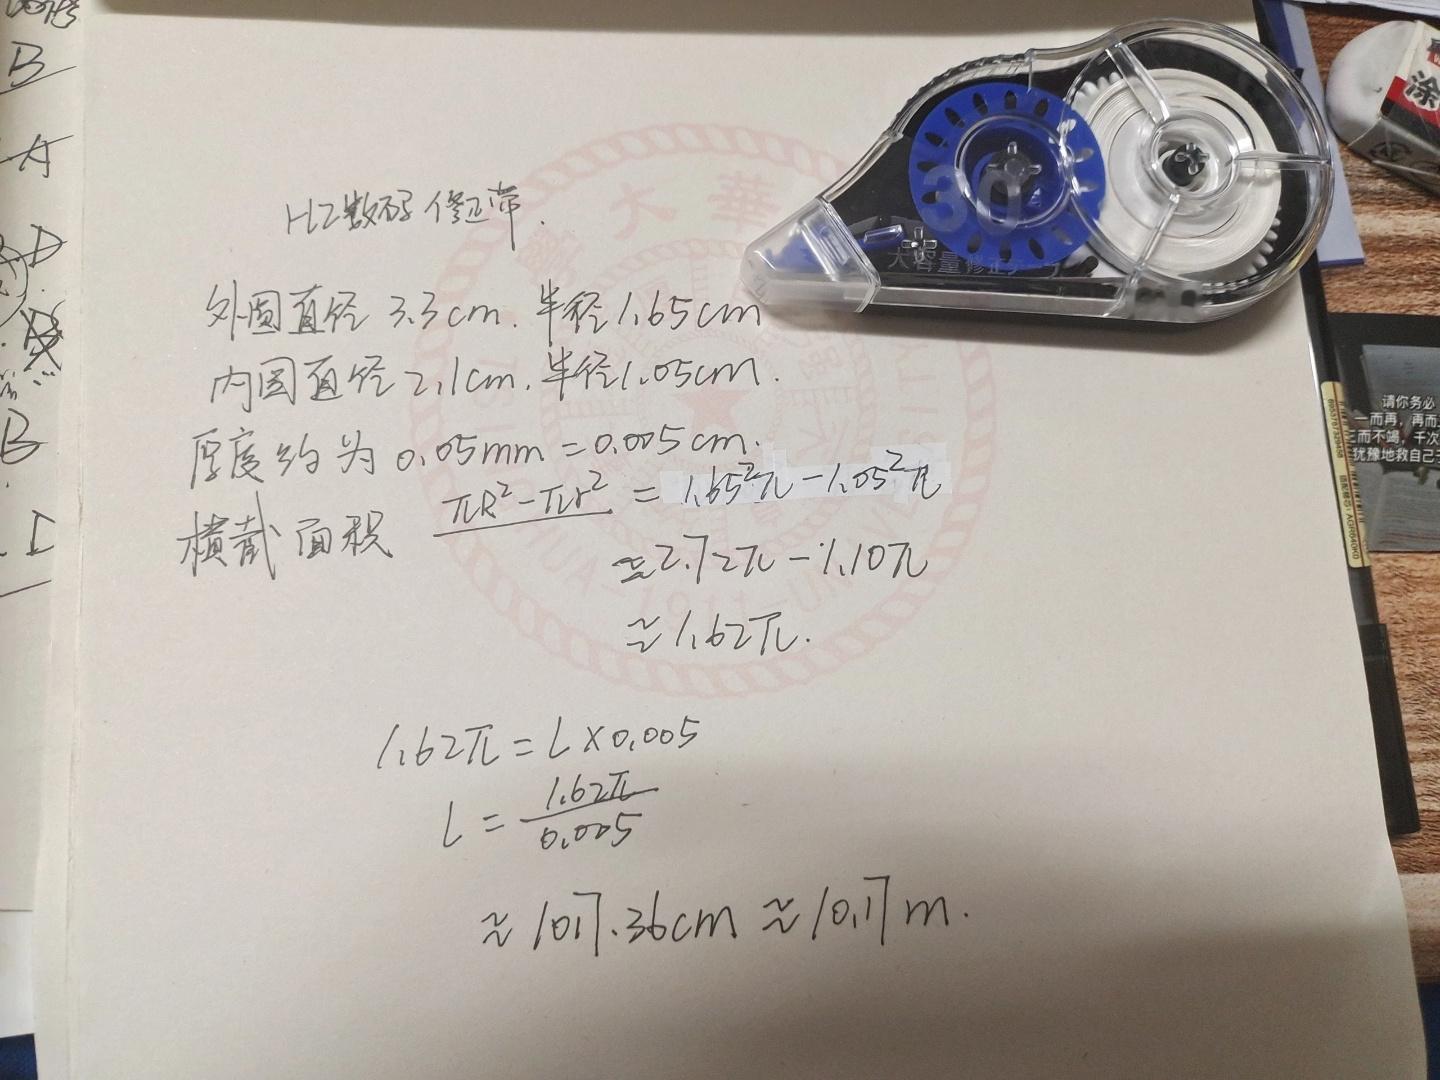 B
A
D
B
I
HZ数码修正带.
外圆直径3.3cm.半径1.65cm
内圆直径2.1cm.半径1.05cm.
厚度约为0.05mm=0.005cm.
横截面积 πR²-πr² = 1.65²π-1.05²π
≈2.72π-1.10π
≈1.62π.
1.62π=L×0.005
L=1.62π/0.005
≈1017.36cm≈10.17m.
30
大容量修正
大華
1911
涂
请你务必
一而再，再而三
三而不竭，千次
犹豫地救自己于